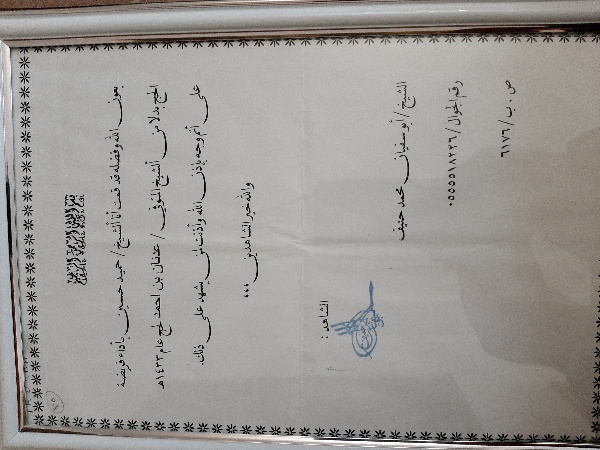 بسم الله الرحمن الرحيم
بعون الله وفضله قد قمت أنا الشيخ / حميد حسين بأداء فريضة
الحج بدلا من الشيخ المتوفي / عدنان بن احمد لحج عام ١٤٣٣هـ
على أتم وجه بإذن الله وأذنت لمن يشهد على ذلك.
والله خير الشاهدين ،،،
الشاهد :
الشيخ / أبو سفيان محمد حنيف
رقم الجوال / ٠٥٥٥٥١٨٢٢٦
ص . ب / ٦١٧٦